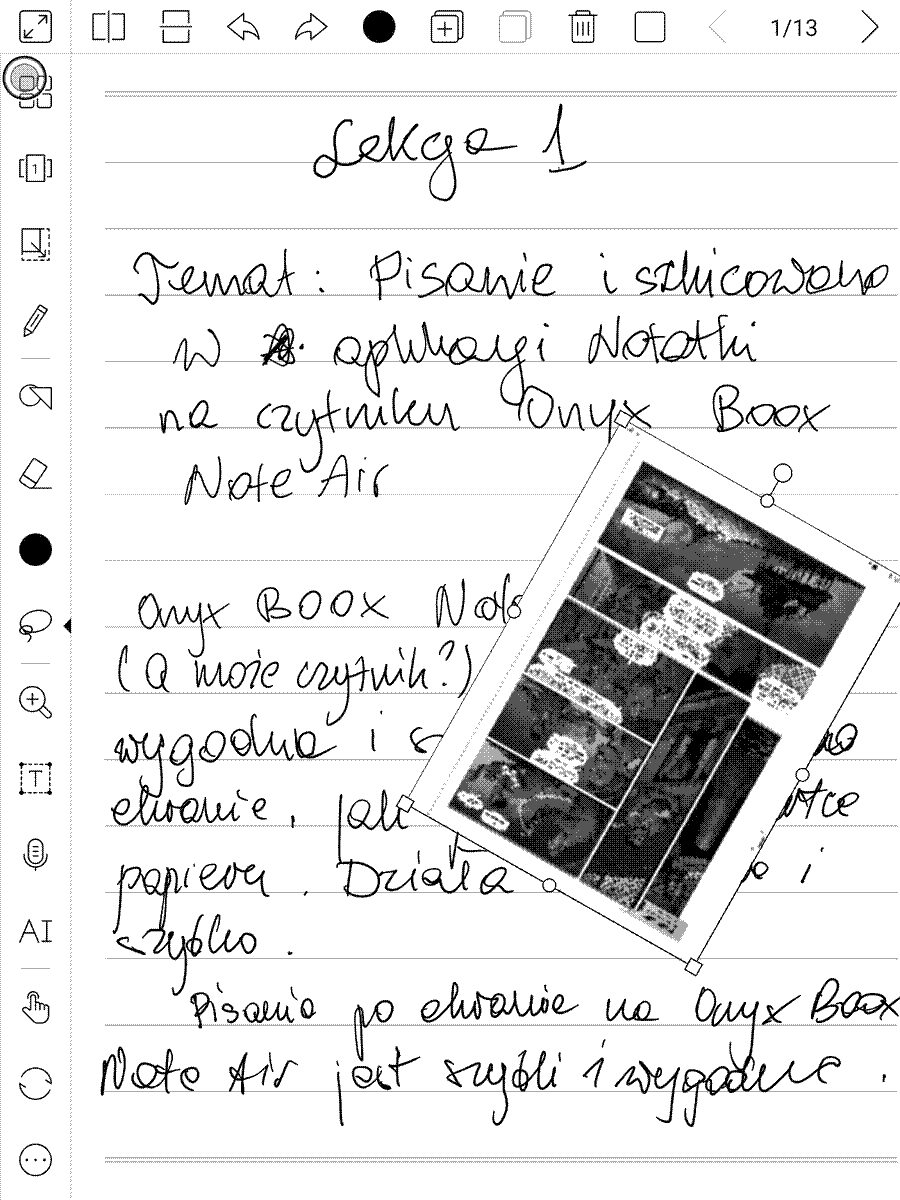 1/13
1
T
AI
Lekcja 1
Temat: Pisanie i szkicowanie
w aplikacji Notatki
na czytniku Onyx Boox
Note Air
Onyx BOOX Note
(a może czytnik?)
wygodne i s no
ekranie, jak rtce
papieru. Działa i
szybko.
Pisanie po ekranie na Onyx Boox
Note Air jest szybki i wygodne.